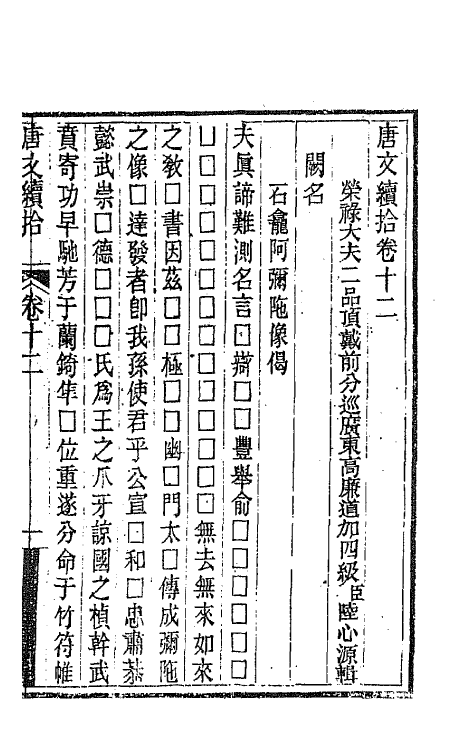 唐文續拾卷十二
榮祿大夫二品頂戴前分巡廣東高廉道加四級臣陸心源輯
闕名
石龕阿彌陁像偈
夫眞諦難測名言□辯□□豐舉俞□□□□□□
□□□□□□□□□□□□□□無去無來如來
之敎□書因茲□□極□□幽□門太□傳成彌陁
之像□達發者卽我孫使君乎公宣□和□忠肅恭
懿武崇□德□□□氏爲王之爪牙諒國之楨幹武
賁寄功早馳芳于蘭錡隼□位重遂分命于竹符帷
唐文續拾 卷十二 一